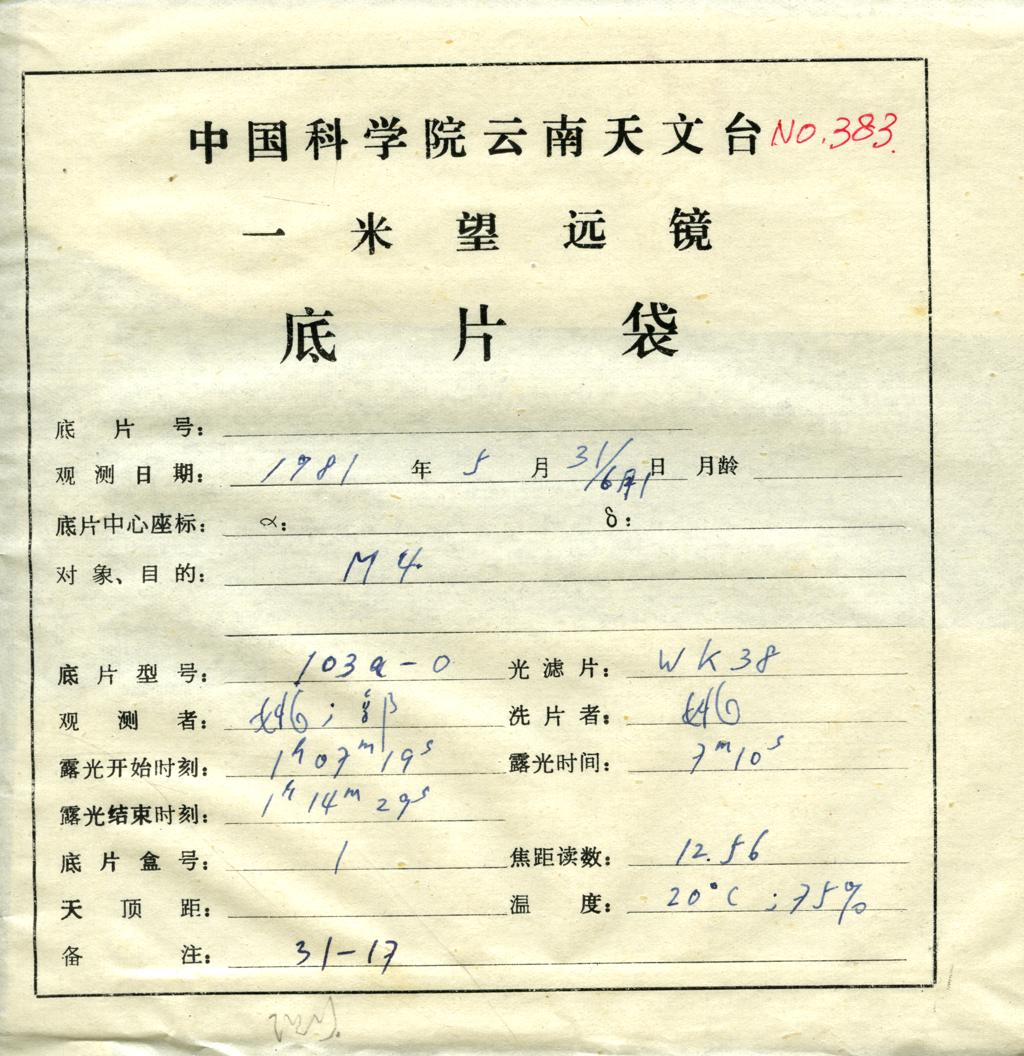 中国科学院云南天文台 NO.383.
一米望远镜
底片袋
底片号：
观测日期：1981年5月31/6月1日 月龄
底片中心座标：α： δ：
对象、目的：M4.
底片型号：103a-O 光滤片：WK38
观测者： 洗片者：
露光开始时刻：1h07m19s 露光时间：7m10s
露光结束时刻：1h14m29s
底片盒号：1 焦距读数：12.56
天顶距： 温度：20°C；75%
备注：31-17